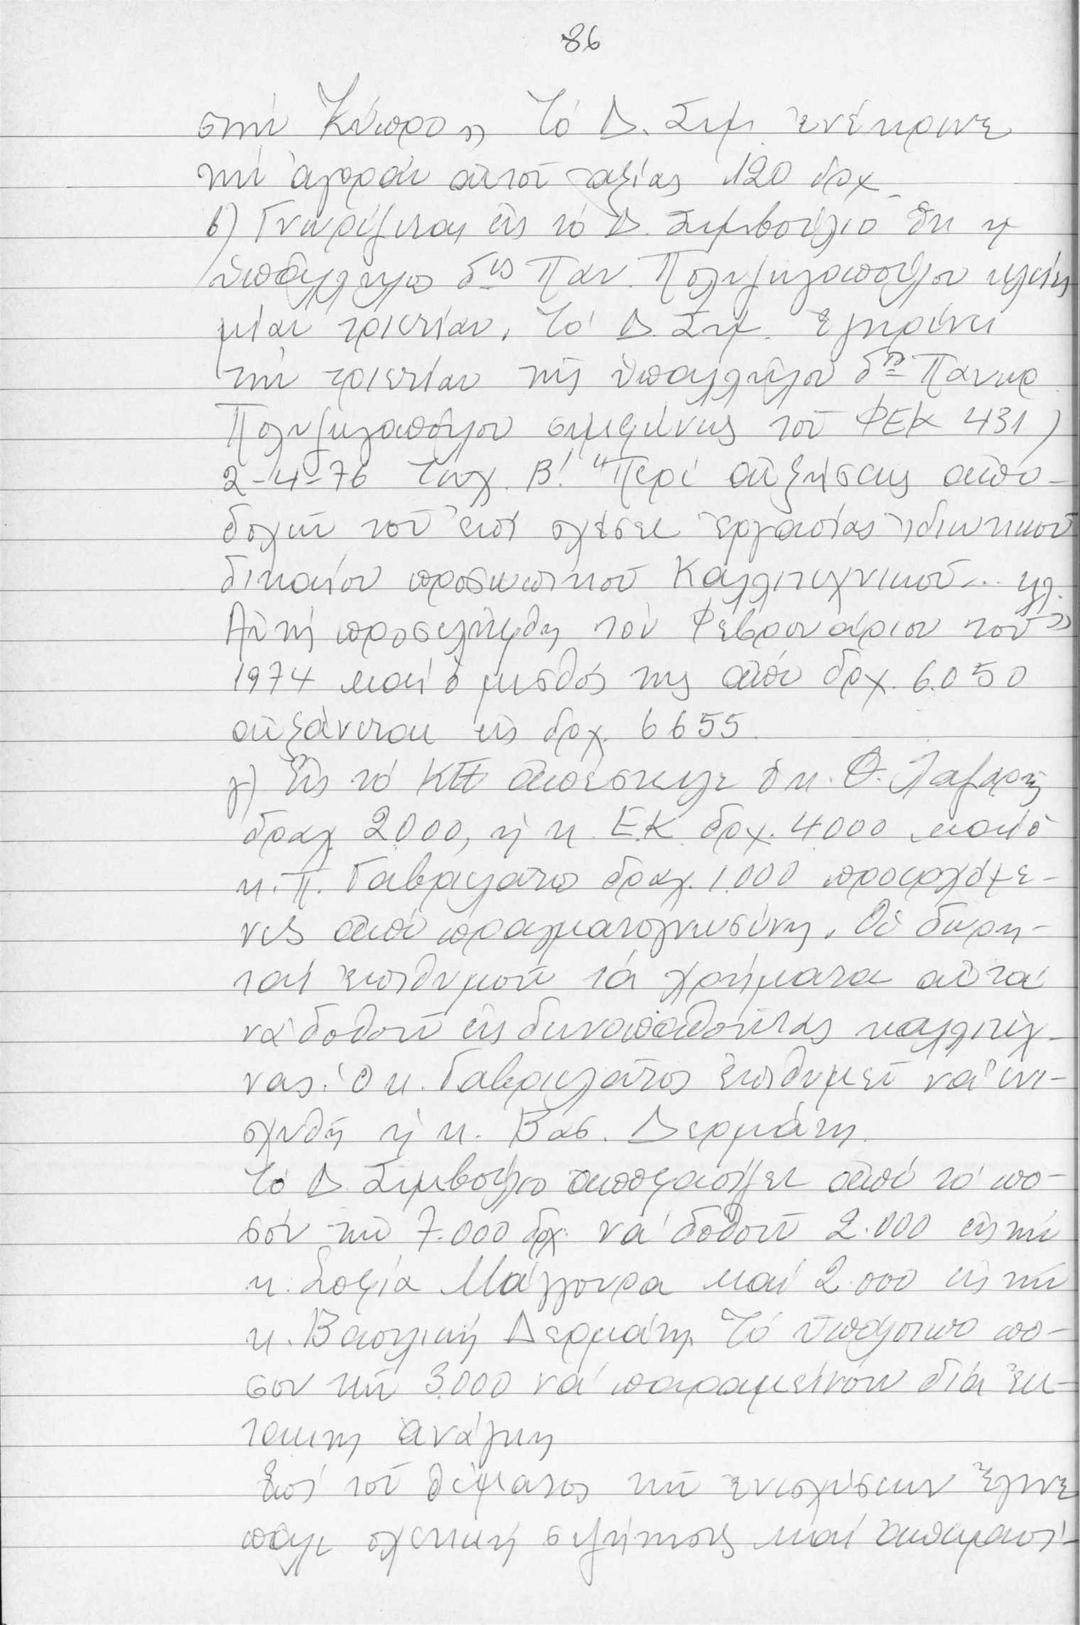 86
στήν Κύπρο», Τό Δ. Συμ. ἐνέκρινε
τήν ἀγοράν αὐτοῦ ἀξίας 120 δρχ
β) Γνωρίζεται εἰς τό Δ. Συμβούλιο ὅτι ἡ
ὑπάλληλος δνις Παν. Πολυζωγοπούλου κλείνει
μίαν τριετίαν. Τό Δ. Συμ. ἐγκρίνει
τήν τριετίαν τῆς ὑπαλλήλου δνδος Παναγ.
Πολυζωγοπούλου συμφώνως τοῦ ΦΕΚ 431)
2-4-76 τευχ. Β! "Περί αὐξήσεως ἀπο-
δοχῶν τοῦ ἐπί σχέσει ἐργασίας ἰδιωτικοῦ
δικαίου προσωπικοῦ Καλλιτεχνικοῦ... κλ.
Αὐτή προσελήφθη τόν Φεβρουάριον τοῦ"
1974 καί ὁ μισθός της ἀπό δρχ. 6.050
αὐξάνεται εἰς δρχ. 6655.
γ) Εἰς τό ΚΠ ἀπέστειλε ὁ κ. Θ. Λαζαρῆς
δραχ. 2000, ἡ κ. Ε.Κ. δρχ. 4000 καί ὁ
κ. Π. Γαβαλᾶτος δραχ. 1.000 προερχόμε-
νες ἀπό πραγματογνωσύνη. Οἱ δωρη-
ταί ἐπιθυμοῦν τά χρήματα αὐτά
νά δοθοῦν εἰς δυναπαθοῦντας καλλιτέχ-
νας. Ὁ κ. Γαβαλᾶτος ἐπιθυμεῖ νά ἐνι-
σχυθῆ ἡ κ. Βασ. Δερμάτη.
Τό Δ. Συμβούλιο ἀποφασίζει ἀπό τό πο-
σόν τῶν 7.000 δρχ. νά δοθοῦν 2.000 εἰς τήν
κ. Σοφία Μάγγουρα καί 2.000 εἰς τήν
κ. Βασιλική Δερμάτη. Τό ὑπόλοιπο πο-
σόν τῶν 3.000 νά παραμείνουν διά ἔκ-
τακτη ἀνάγκη
Ἐπί τοῦ θέματος τῶν ἐνισχύσεων ἔγινε
πάλι σχετική συζήτησις καί ἀποφασί-